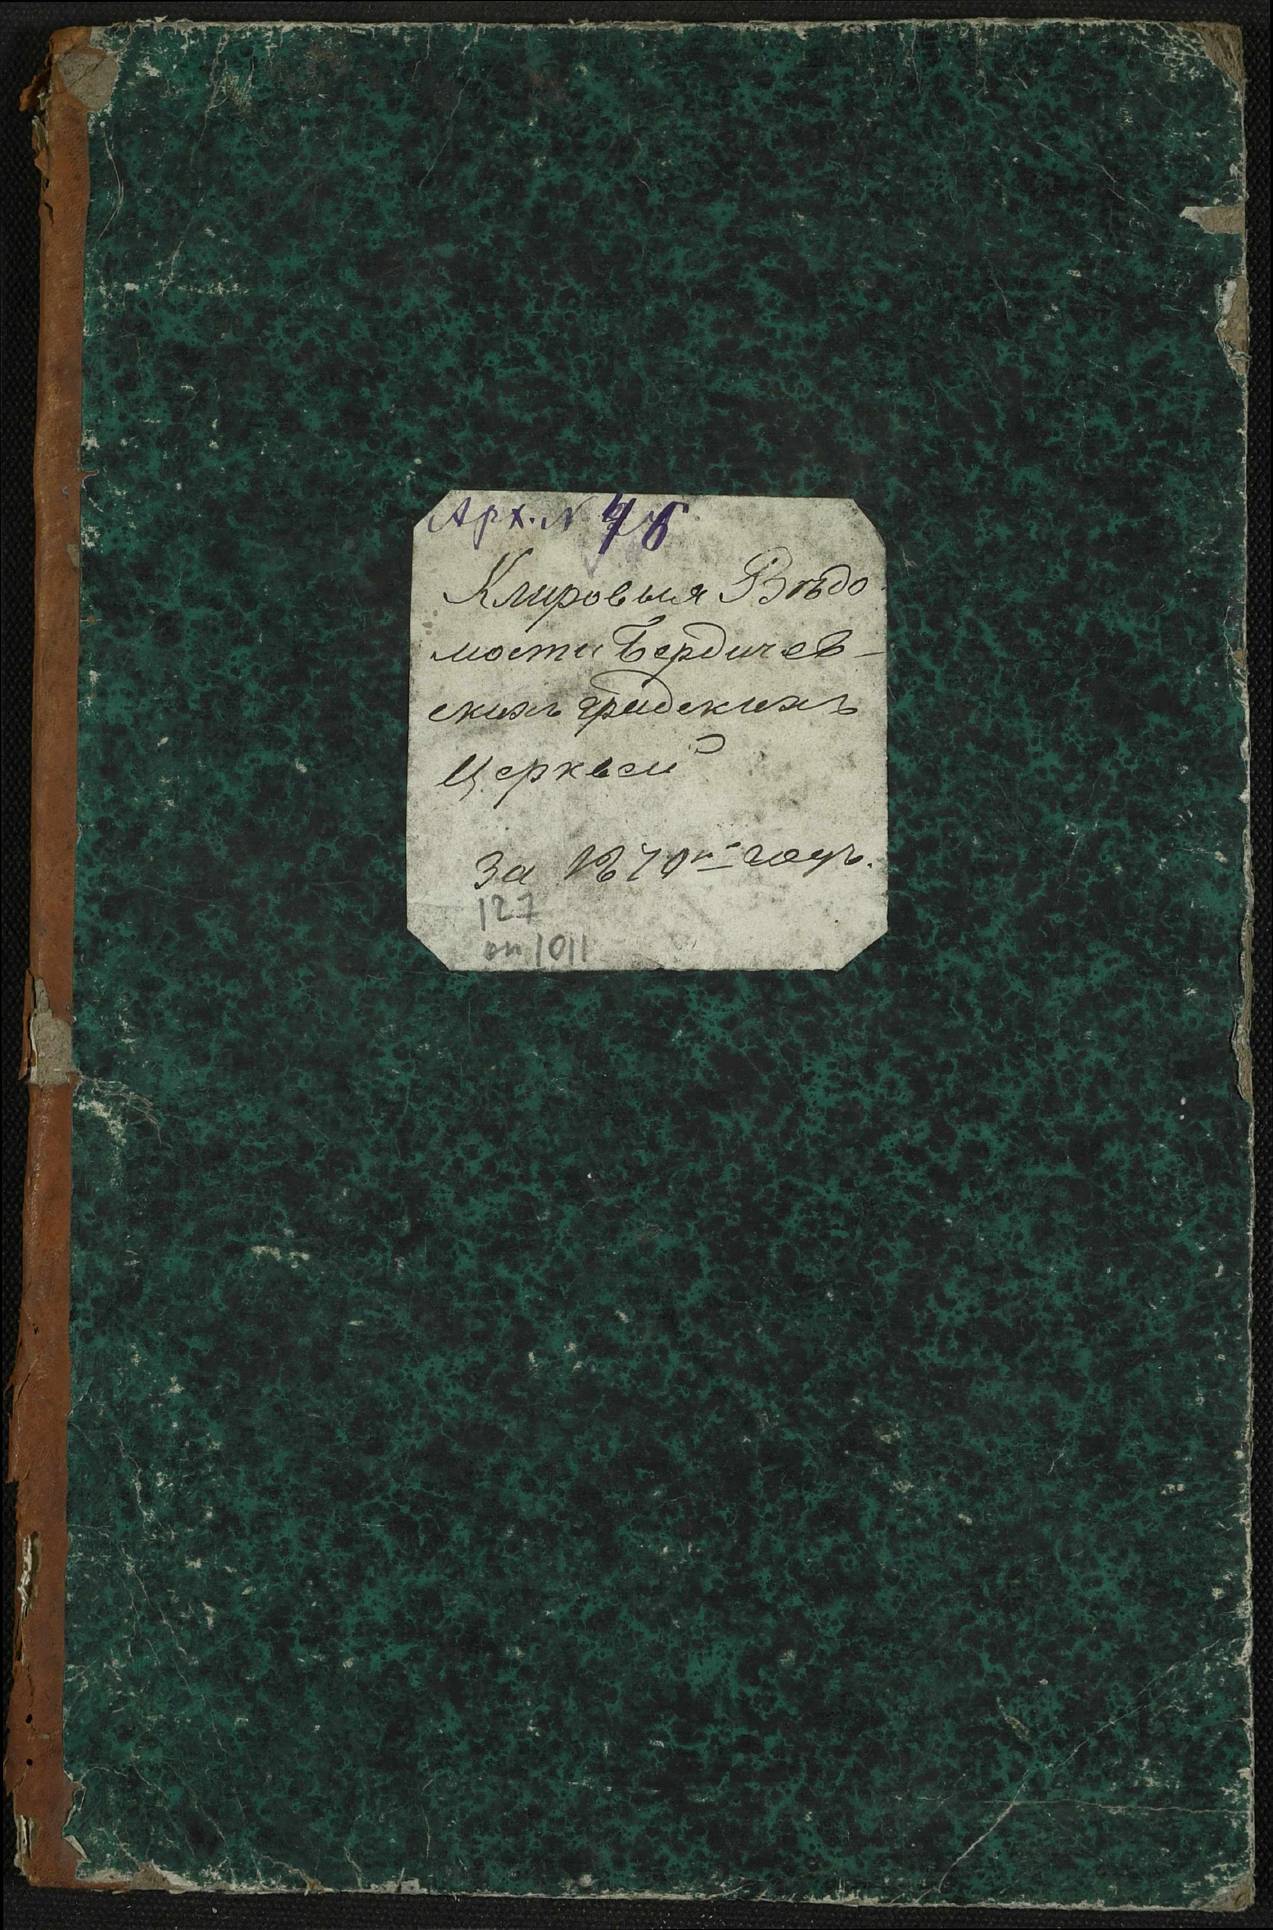 Арх. N 46
Клировыя Вѣдо
мости Бердичев-
скихъ градскихъ
Церквей
За 1870й годъ.
127
оп 1011